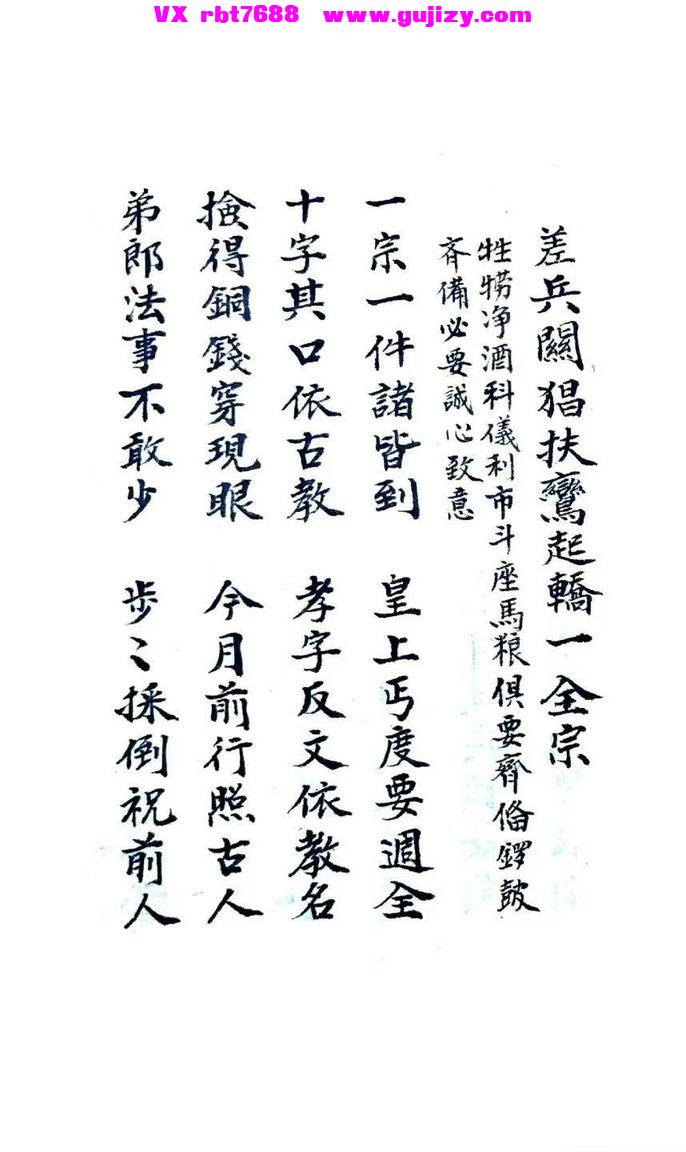 VX rbt7688 www.gujizy.com
差兵關猖扶鸞起轎一全宗
牲牢净酒科儀利市斗座馬粮俱要齊俻鑼皷
斉備必要誠心致意
一宗一件諸皆到 皇上丐度要週全
十字其口依古教 孝字反文依教名
撿得銅錢穿現眼 今月前行照古人
弟郎法事不敢少 步〻採倒祝前人